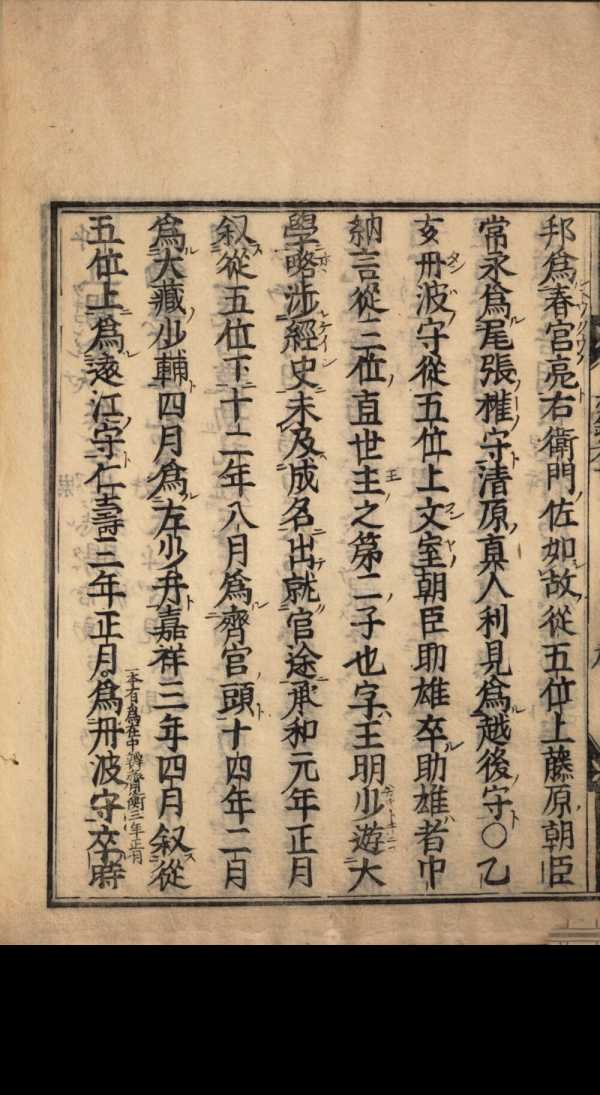 邦爲春宮亮右衞門佐如故從五位上藤原朝臣
常永爲尾張權守清原眞人利見爲越後守○乙
亥丹波守從五位上文室朝臣助雄卒助雄者中
納言從三位直世主之第二子也字王明少遊大
學略涉經史未及成名出就官途承和元年正月
叙從五位下十二年八月爲齊官頭十四年二月
爲大藏少輔四月爲左少弁嘉祥三年四月叙從
五位上爲遠江守仁壽三年正月爲丹波守卒時
一本有爲左中辨齊衡三年正月